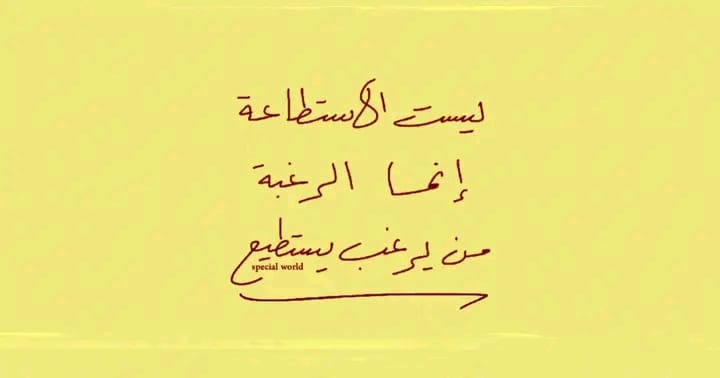 ليست الاستطاعة
إنما الرغبة
من يرغب يستطيع
special world